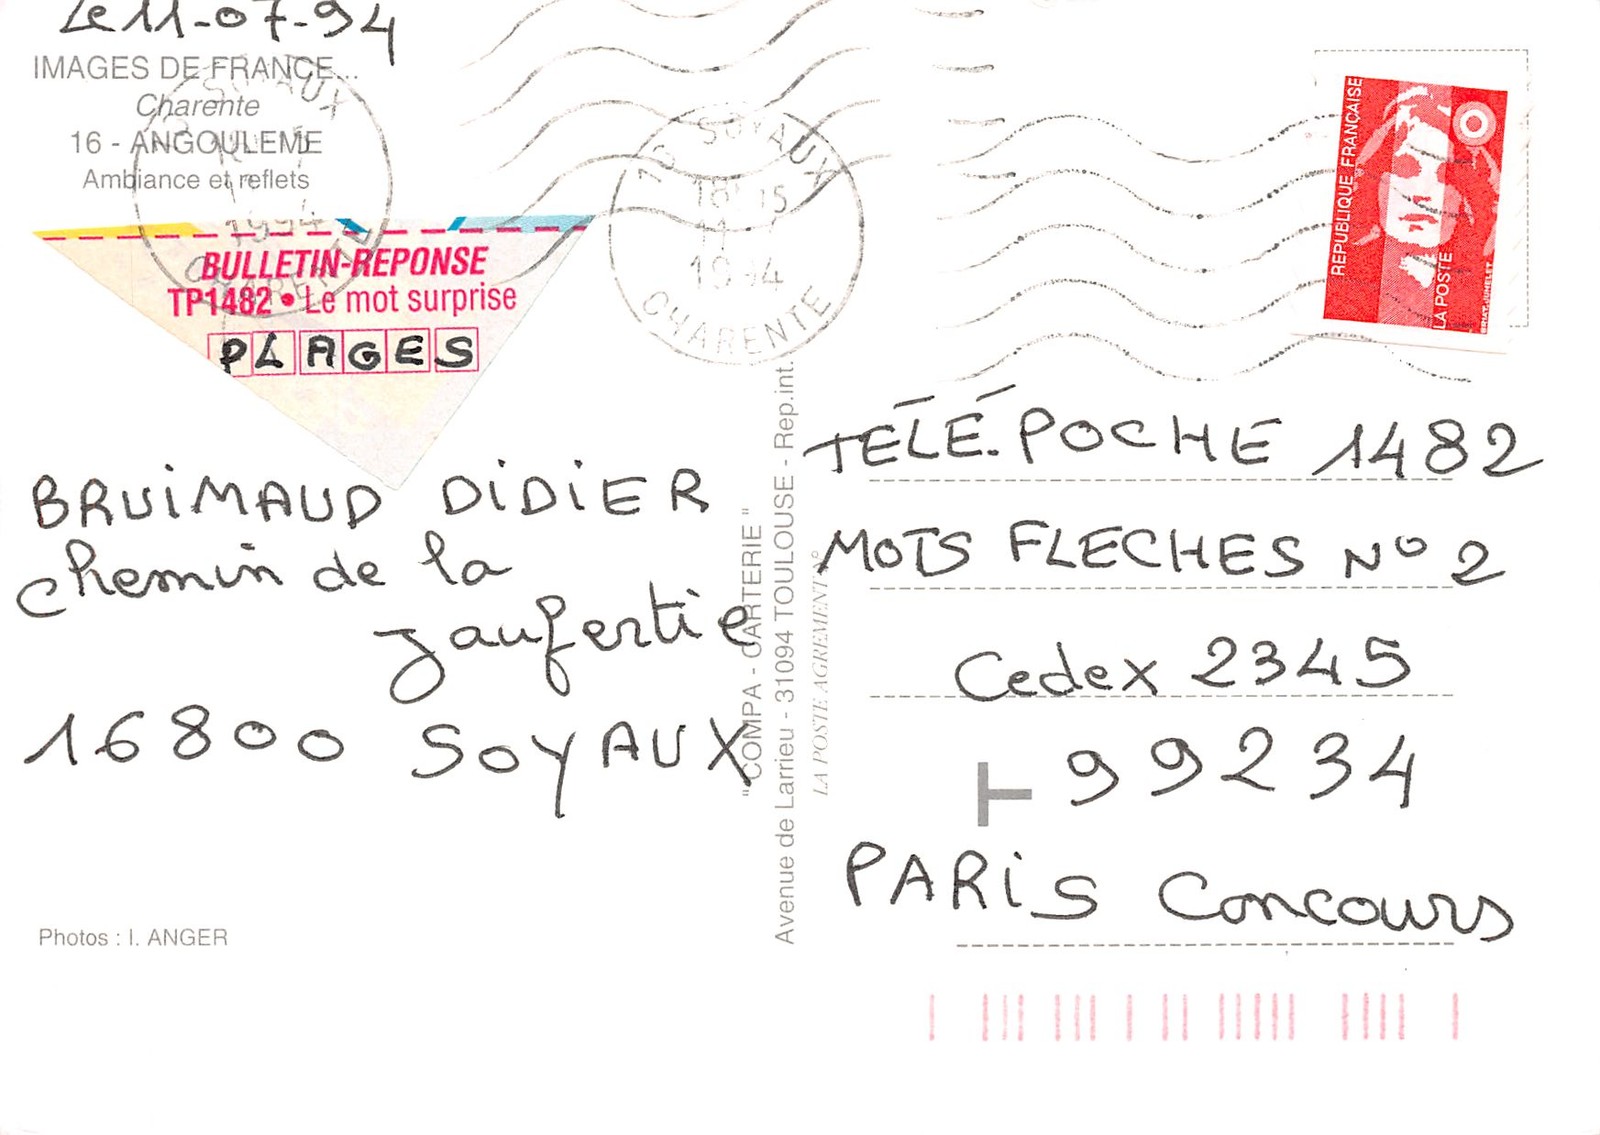 Le 11-07-94
IMAGES DE FRANCE...
Charente
16 - ANGOULEME
Ambiance et reflets
BULLETIN-REPONSE
TP1482 • Le mot surprise
PLAGES
BRUIMAUD DIDIER
chemin de la
jaufertie
16800 SOYAUX
Photos : I. ANGER
16 SOYAUX
18H15
11-7
1994
CHARENTE
" COMPA - CARTERIE "
Avenue de Larrieu - 31094 TOULOUSE - Rep.int.
LA POSTE AGREMENT N°
REPUBLIQUE FRANÇAISE
LA POSTE
TÉLÉ.POCHE 1482
MOTS FLECHES N° 2
Cedex 2345
T 99234
PARIS Concours